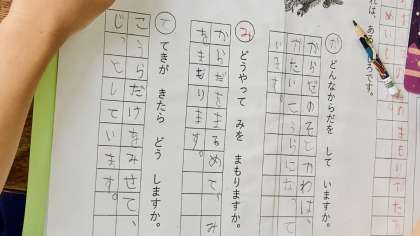 れは、ある
ろです。
か どんなからだを して いますか。
からだのそとがわは、
かたいこうらになって
います。
み どうやって みを まもりますか。
からだをまるめて、み
をまもります。
て てきが きたら どう しますか。
こうらだけをみせて、
じっとしています。